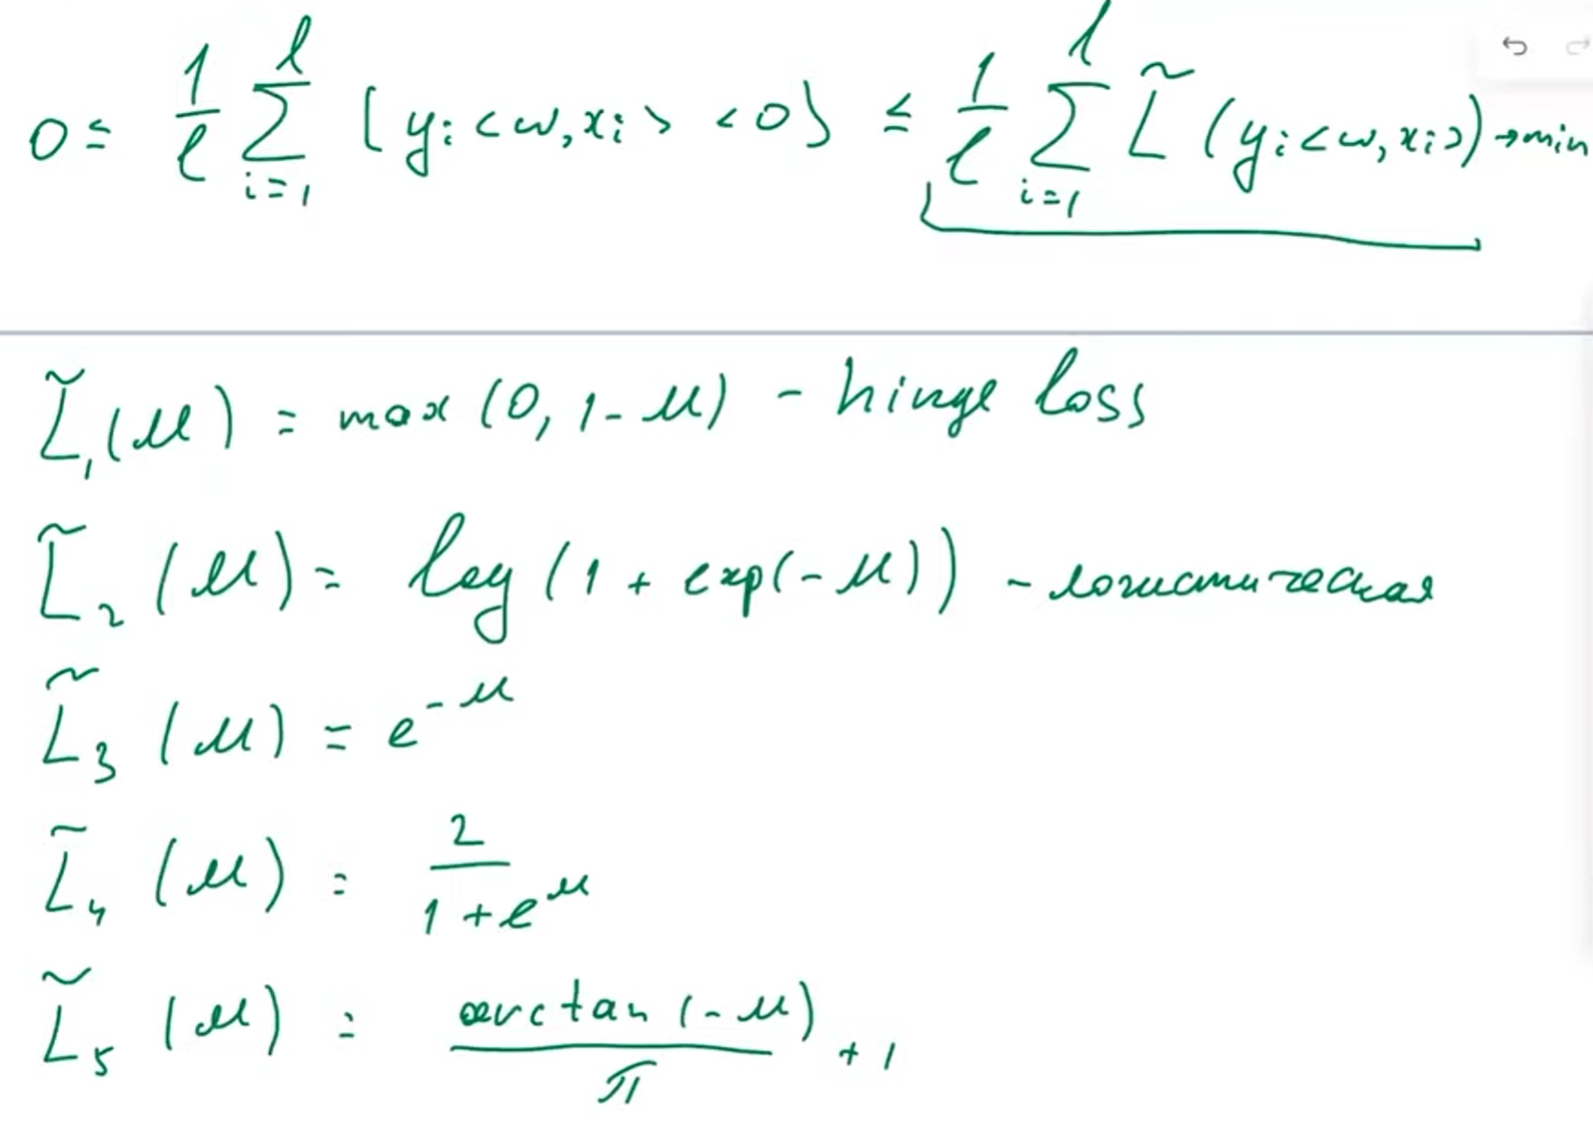 0 ≤ 1/ℓ ∑_{i=1}^{ℓ} [y_i <w, x_i> < 0] ≤ 1/ℓ ∑_{i=1}^{ℓ} L̃ (y_i <w, x_i>) → min
L̃₁(M) = max (0, 1 - M) - hinge loss
L̃₂ (M) = log (1 + exp(- M)) - логистическая
L̃₃ (M) = e^{-M}
L̃₄ (M) = 2/(1 + e^M)
L̃₅ (M) = arctan (-M)/π + 1